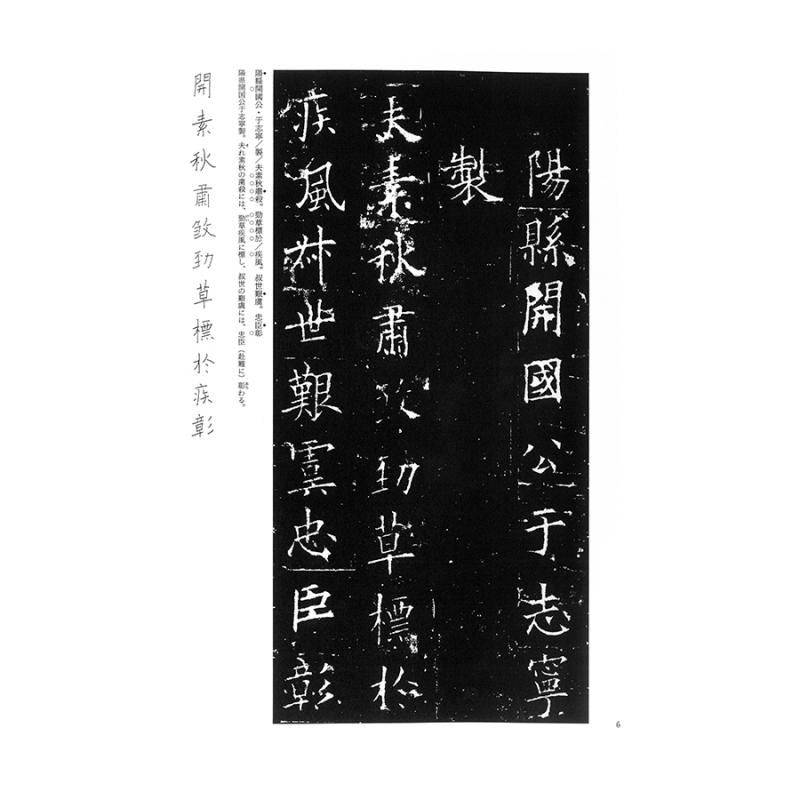 陽縣開國公于志寧
製
夫素秋肅殺勁草標於
疾風叔世艱虞忠臣彰
陽縣開國公・于志寧／製／夫素秋肅殺。勁草標於／疾風。叔世艱虞。忠臣彰
陽県開国公于志寧製。夫れ素秋の粛殺には、勁草疾風に標し、叔世の艱虞には、忠臣（赴難に）彰わる。
開素秋肅敛勁草標於疾彰
6